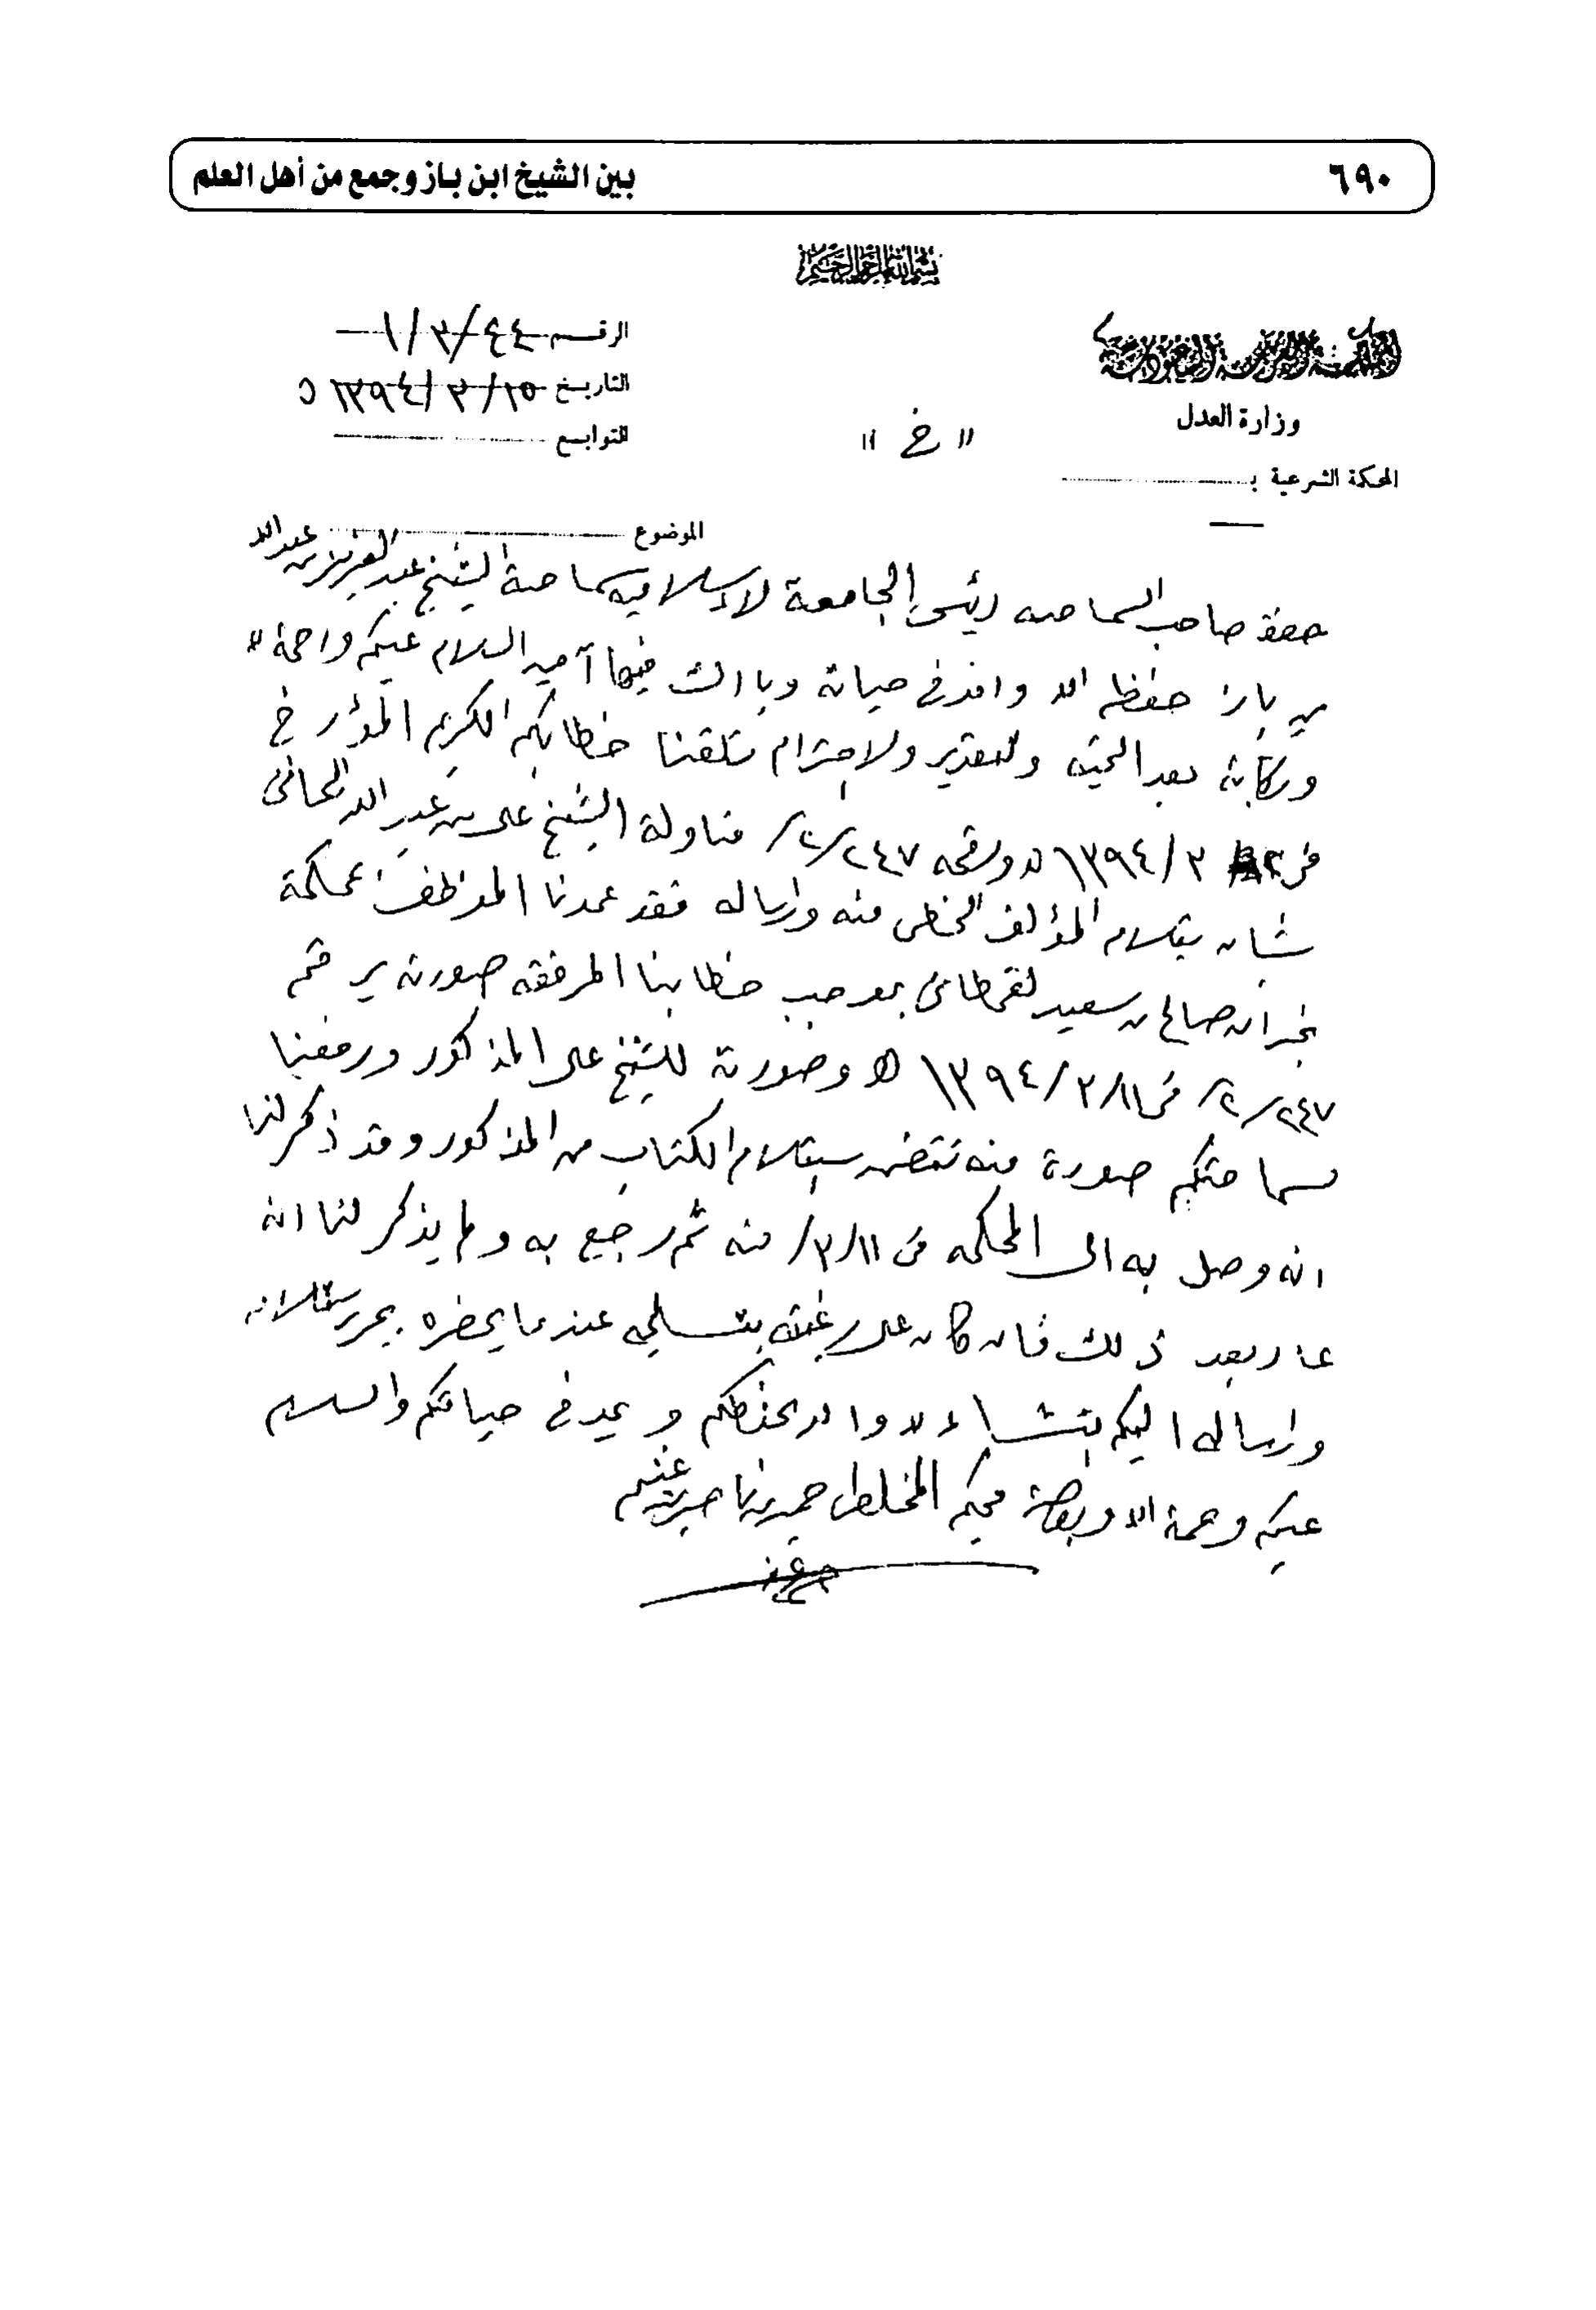 ٦٩٠
بين الشيخ ابن باز وجمع من أهل العلم
بسم الله الرحمن الرحيم
المملكة العربية السعودية
وزارة العدل
المحكمة الشرعية بـ
الرقم ١/٣/٤٤
التاريخ ١٣٩٤/٣/١٥ ه
التوابع
" خ "
الموضوع
صاحب السماحه رئيس الجامعة الاسلاميه سماحة الشيخ عبد العزيز بن عبد الله
بن باز حفظه الله في حياته وبارك فيها آمين السلام عليكم ورحمة الله
وبركاته بعد التحيه والتقدير والاحترام تلقينا خطابكم الكريم المؤرخ
في ١٣٩٤/٣ ٢٤٧/٢/ الشيخ علي بن عبد الله
بشان المؤلف الخطي منه وارساله فقد عمدنا الموظف بمحكمة
نجران صالح بن سعيد القحطاني بموجب خطابنا المرفقه صورته برقم
٢٤٧/٢/ في ١٣٩٤/٣/١١ ه وصورته للشيخ علي المذكور ورفعنا
سماحتكم صورة منه الكتاب من المذكور وقد ذكر لنا
انه وصل به الى المحكمه في ٣/١١/ منه ثم رجع به ولم يذكر لنا انه
عاد بعد ذلك فان كان على عندما يحضره
وارساله اليكم والله يحفظكم ويمد في حياتكم والسلام
عليكم ورحمة الله وبركاته محبكم المخلص